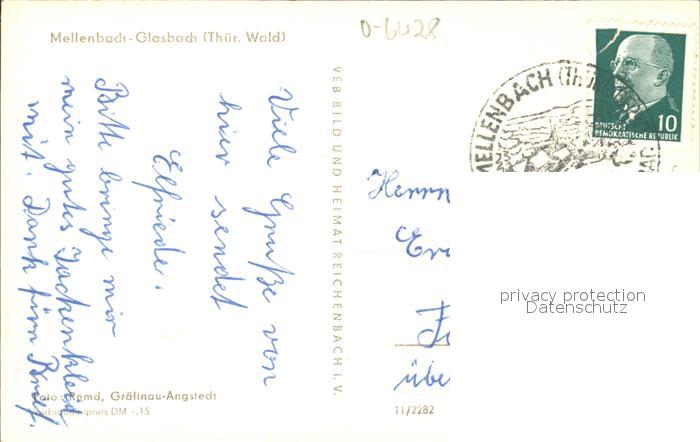 Mellenbach-Glasbach (Thür. Wald)
D-6428
Viele Grüße von
hier sendet
Elfriede.
Bitte bringe mir
mein gutes Jackenkleid
mit. Dank fürn Brief.
VEB BILD UND HEIMAT REICHENBACH i. V.
MELLENBACH (THÜR
DEUTSCHE
DEMOKRATISCHE REPUBLIK
10
Herrn
übe
privacy protection
Datenschutz
Foto: Remd, Gräfinau-Angstedt
Verbraucherpreis DM -.15
11/2282